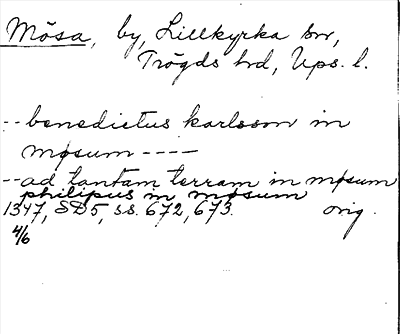 Mösa, by, Lillkyrka sn,
Trögds hd, Ups. l.
-- benedictus karlsson in
møsum ----
-- ad tantam terram in møsum
philipus in møsum
1347, SD5, ss. 672, 673. orig.
4/6